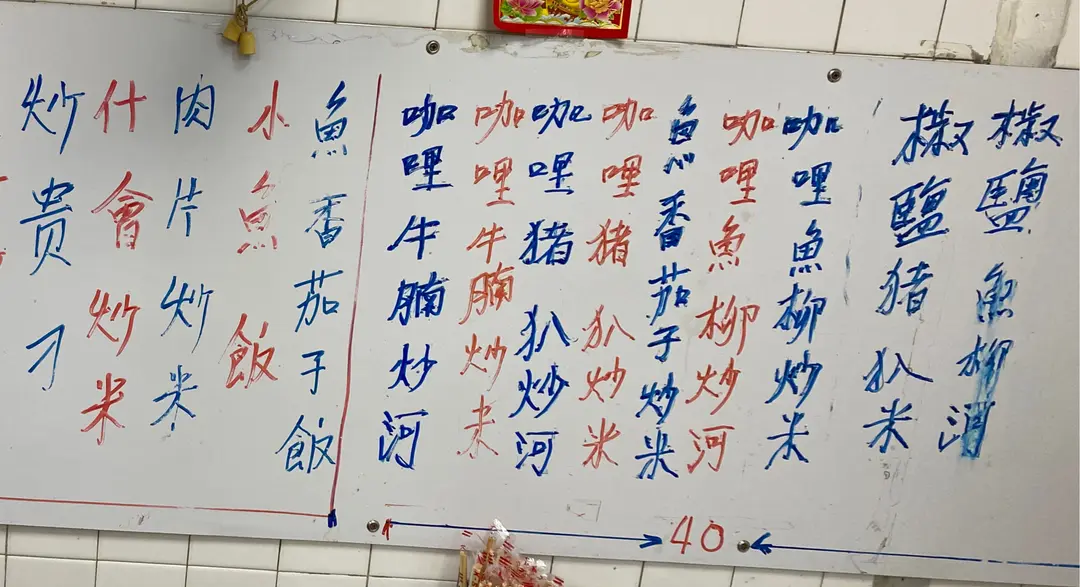 椒鹽魚柳河
椒鹽猪扒米
咖哩魚柳炒米
咖哩魚柳炒河
魚香番茄子炒米
咖哩猪扒炒米
咖哩猪扒炒河
咖哩牛腩炒米
咖哩牛腩炒河
40
魚番茄子飯
小魚飯
肉片炒米
什會炒米
炒贵刁